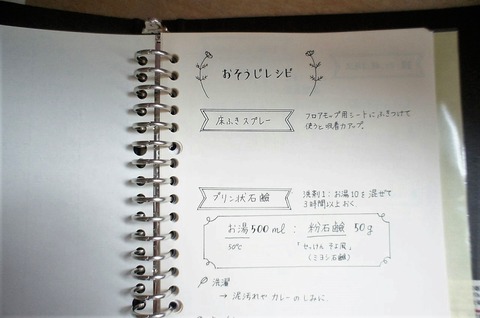 おそうじレシピ
床ふきスプレー
フロアモップ用シートにふきつけて
使うと吸着力アップ。
プリン状石鹸
洗剤1:お湯10を混ぜて
3時間以上おく
お湯500ml : 粉石鹸 50g
50℃ 「せっけん そよ風」
(ミヨシ石鹸)
洗濯
→ 泥汚れやカレーのしみに.